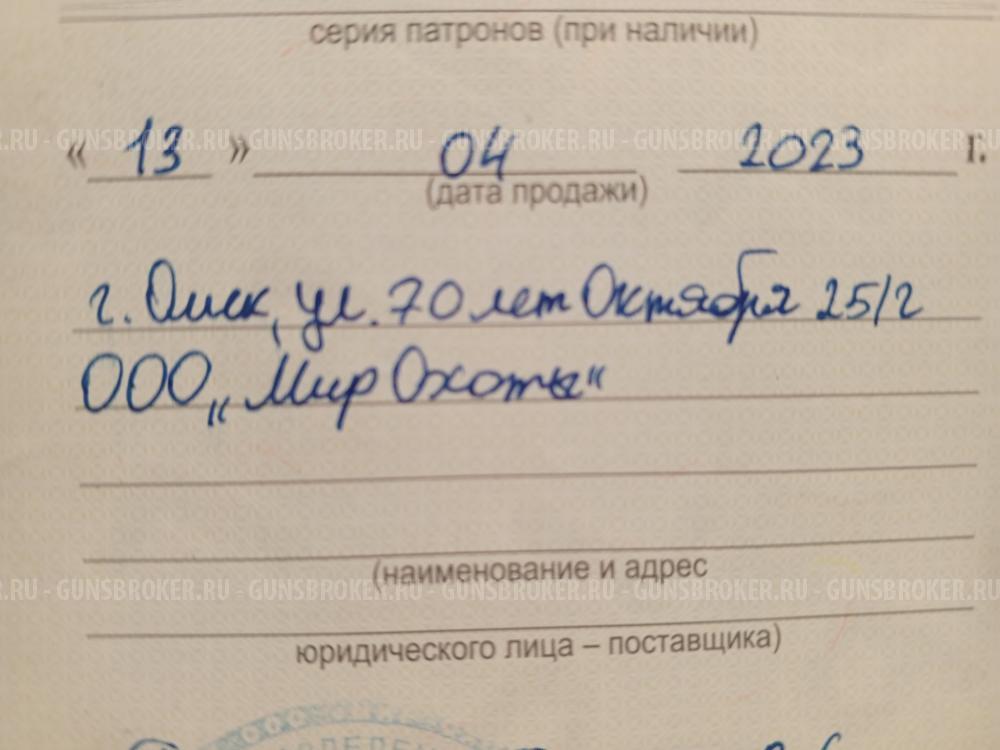 серия патронов (при наличии)
.RU - GUNSBROKER.RU - GUNSBROKER.RU - GUNSBROKER.RU - GUNSBROKER.RU - GUNSBROKER.RU
« 13 » 04 2023 г.
(дата продажи)
г. Омск, ул. 70 лет Октября 25/2
ООО „Мир Охоты“
(наименование и адрес
.RU - GUNSBROKER.RU - GUNSBROKER.RU - GUNSBROKER.RU - GUNSBROKER.RU - GUNSBROKER.RU
юридического лица – поставщика)
ООО